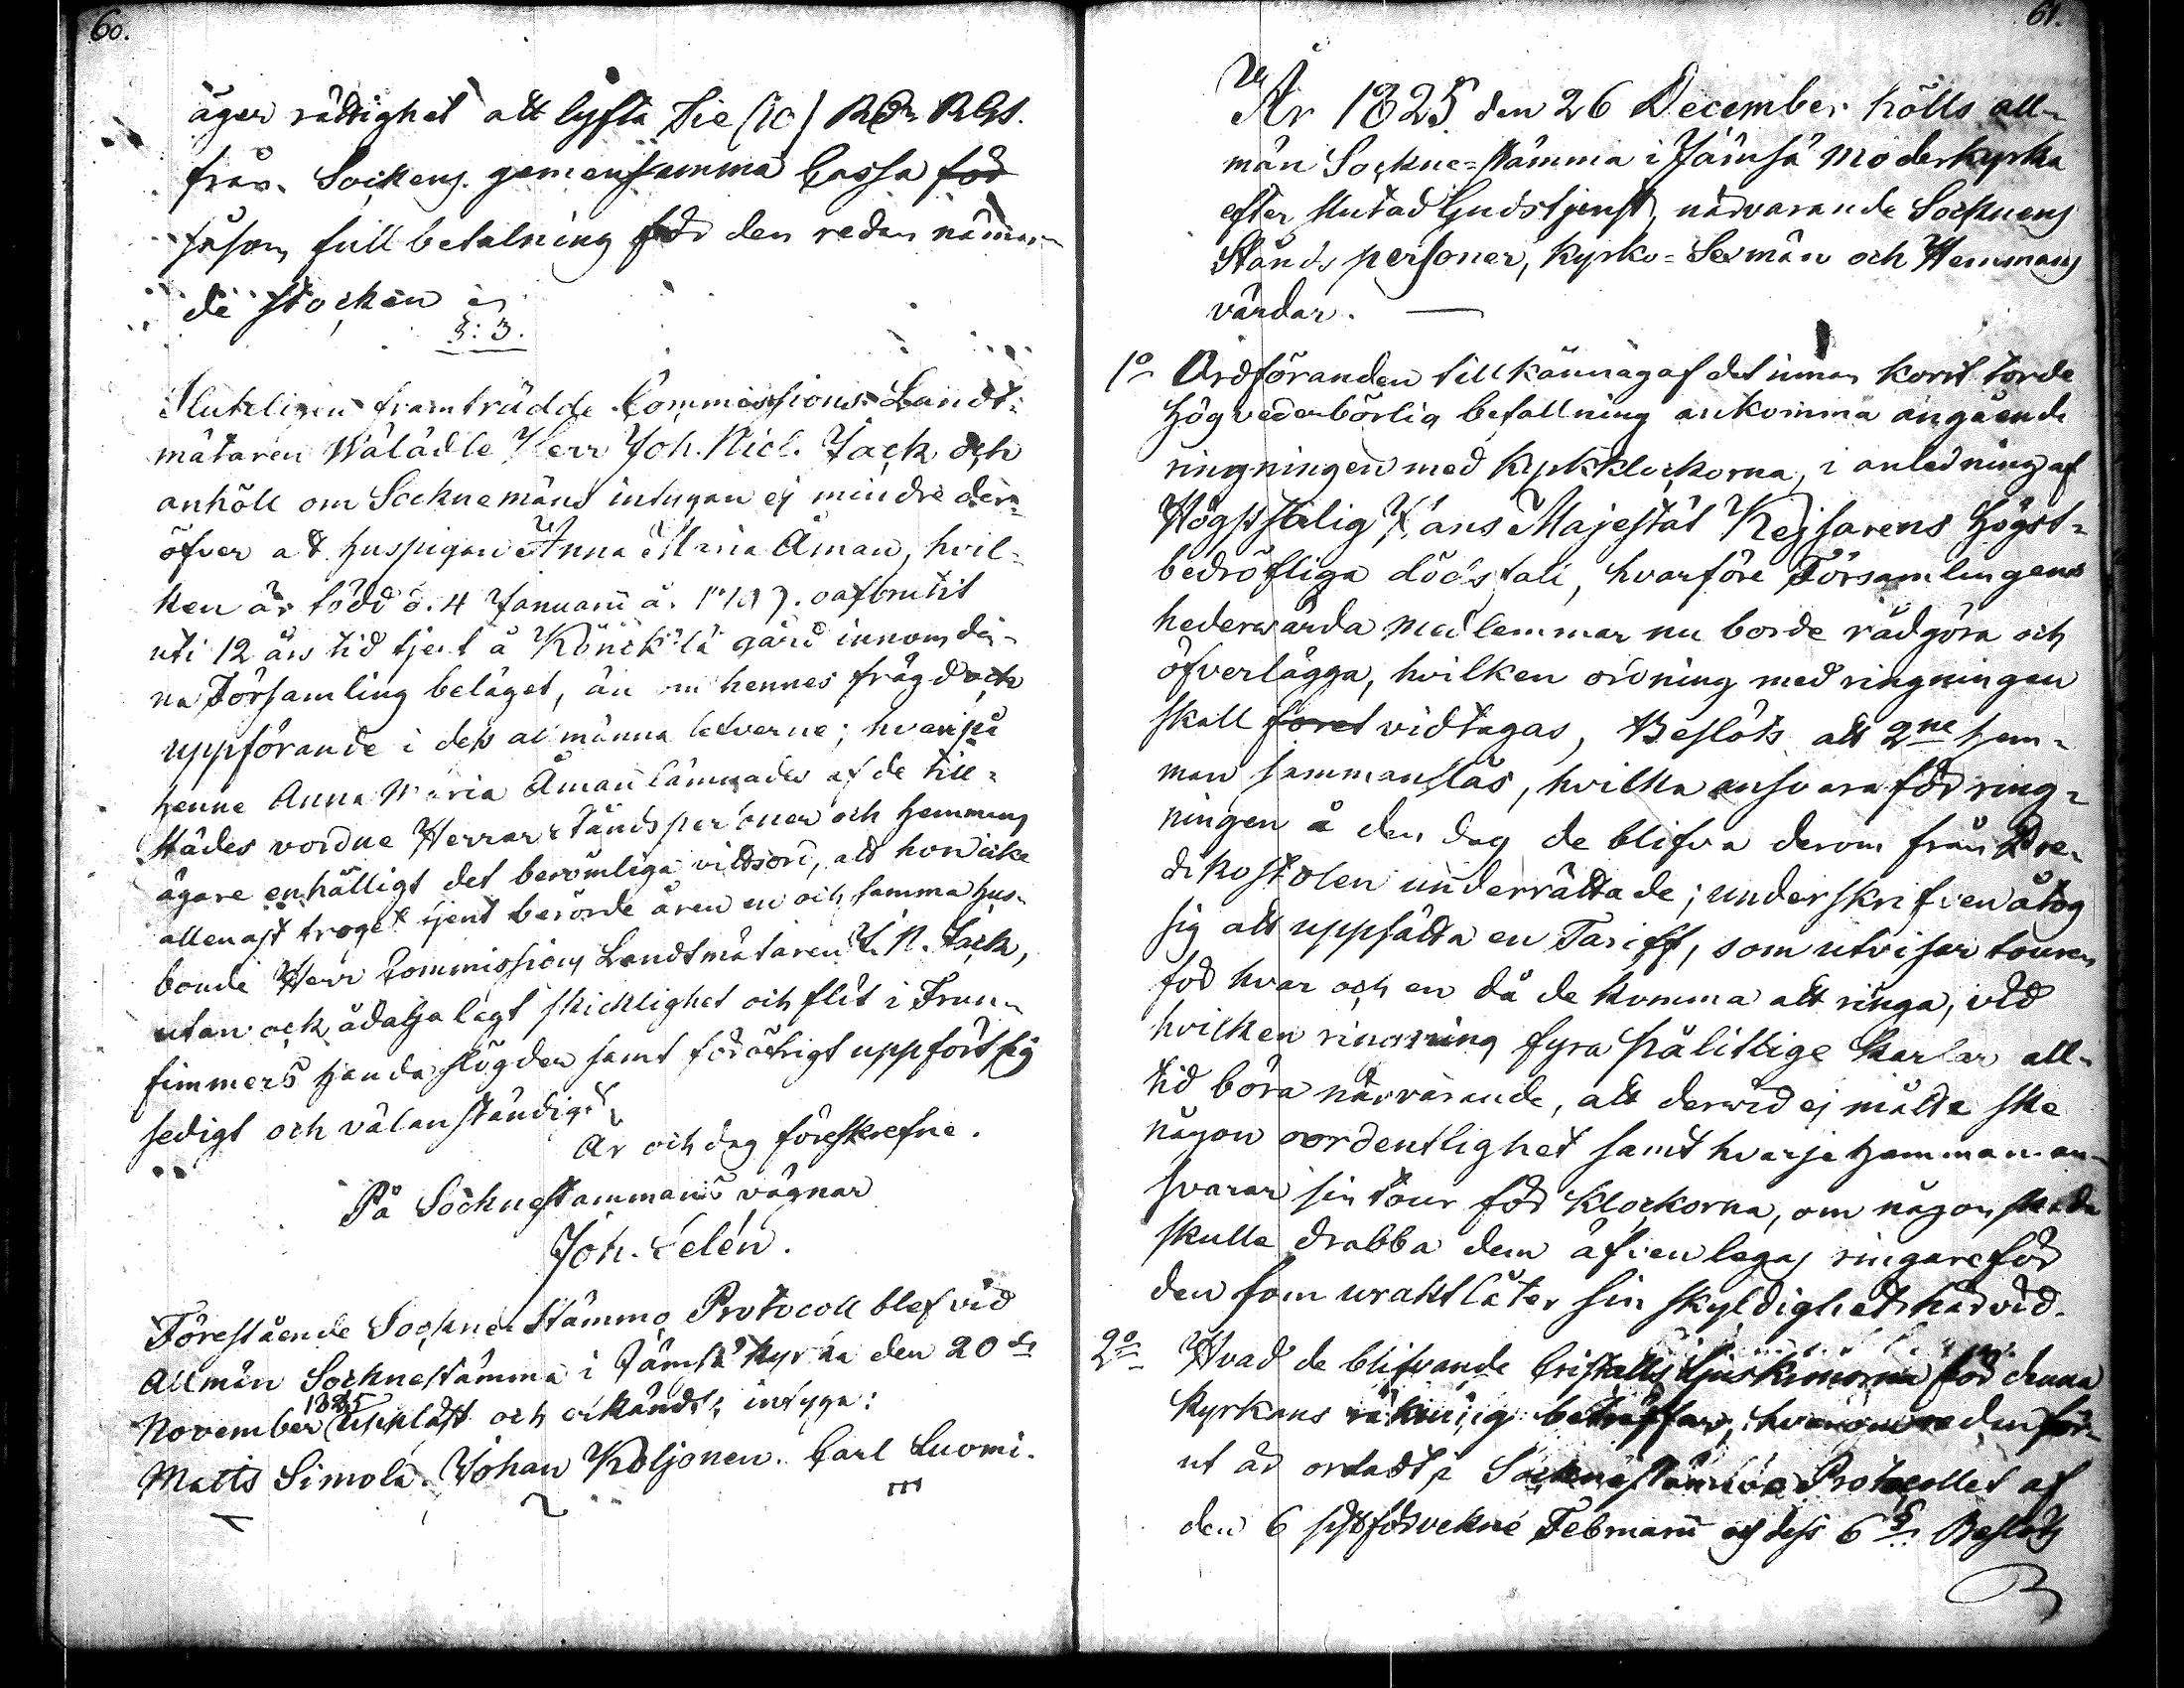 60.
äger rättighet att lyfta Tie (10) R. Rgs.
från Sockens gemensamma Cassa för
såsom full betalning för den redan nämn-
de stocken
§: 3.
Slutligen framträdde Commissions Landt-
mätaren Wälädle Herr Joh. Nicl. Jack och
anhöll om Socknemäns intygan ej mindre der-
öfver at huspigan Anna Maria Åman, hvil-
ken är född d. 4 Januarii år oafbrutit
uti 12 års tid tjent å gård innom den-
na Församling beläget, än om hennes frägd och
uppförande i dess allmänna lefverne; hvarpå
henne Anna Maria Åman lämnades af de till-
städes vordne Herrar ståndspersoner och hemmans
ägare enhälligt det berömliga vittsord, att hon icke
allenast troget tjent berörde åren en och samma hus-
bonde Herr Commissions Landtmätaren J. N. Jack,
utan ock ådalagt skicklighet och flit i Frun-
timmers handaslögder samt föröfrigt uppfört sig
sedigt och välanständigt
År och dag föreskrefne.
På Socknestämmans vägnar
Joh. Telén.
Förestående Sockne Stämmo Protocoll blef vid
Allmän Socknestämma i Jämsä kyrka den 20de
November 1825 uppläst och erkändt, intyga:
Matts Simola. Johan Koljonen. Carl Luomi.
61.
År 1825 den 26 December hölls all-
män Sockne-stämma i Jämsä Moderkyrka
efter slutad Gudstjenst, närvarande Socknens
Ståndspersoner, Kyrko-Sexmän och Hemmans
värdar.
1o Ordföranden tillkännagaf det innan kort torde
högvederbörlig befallning ankomma angående
ringningen med kyrkklockorna, i anledning af
Högstsalig Hans Majestät Kejsarens högst-
bedröfliga dödsfall, hvarföre Församlingens
hedervärda medlemmar nu borde rådgöra och
öfverlägga, hvilken ordning med ringningen
skall foret vidtagas, Beslöts att 2ne hem-
man sammanslås, hvilka ansvara för ring-
ningen å den dag de blifva derom från Pre-
dikostolen underrättade; underskrifven åtog
sig att uppsätta en Tariff, som utvisar touren
för hvar och en då de komma att ringa, vid
hvilken ringning fyra pålitlige karlar all-
tid böra närvarande, att dervid ej måtte ske
någon oordentlighet samt hvarje hemman an-
svarar sin tour för klockorna, om någon skada
skulle drabba dem äfven legas ringare för
den som uraktlåter sin skyldighet härvid.
2o Hvad de blifvande Cristalls ljuskronorna för denna
kyrkans räkning beträffar, hvarom redan för-
ut är ordadt i Socknestämmo Protocollet af
den 6 sistförvekne Februarii och dess 6 § Beslöts